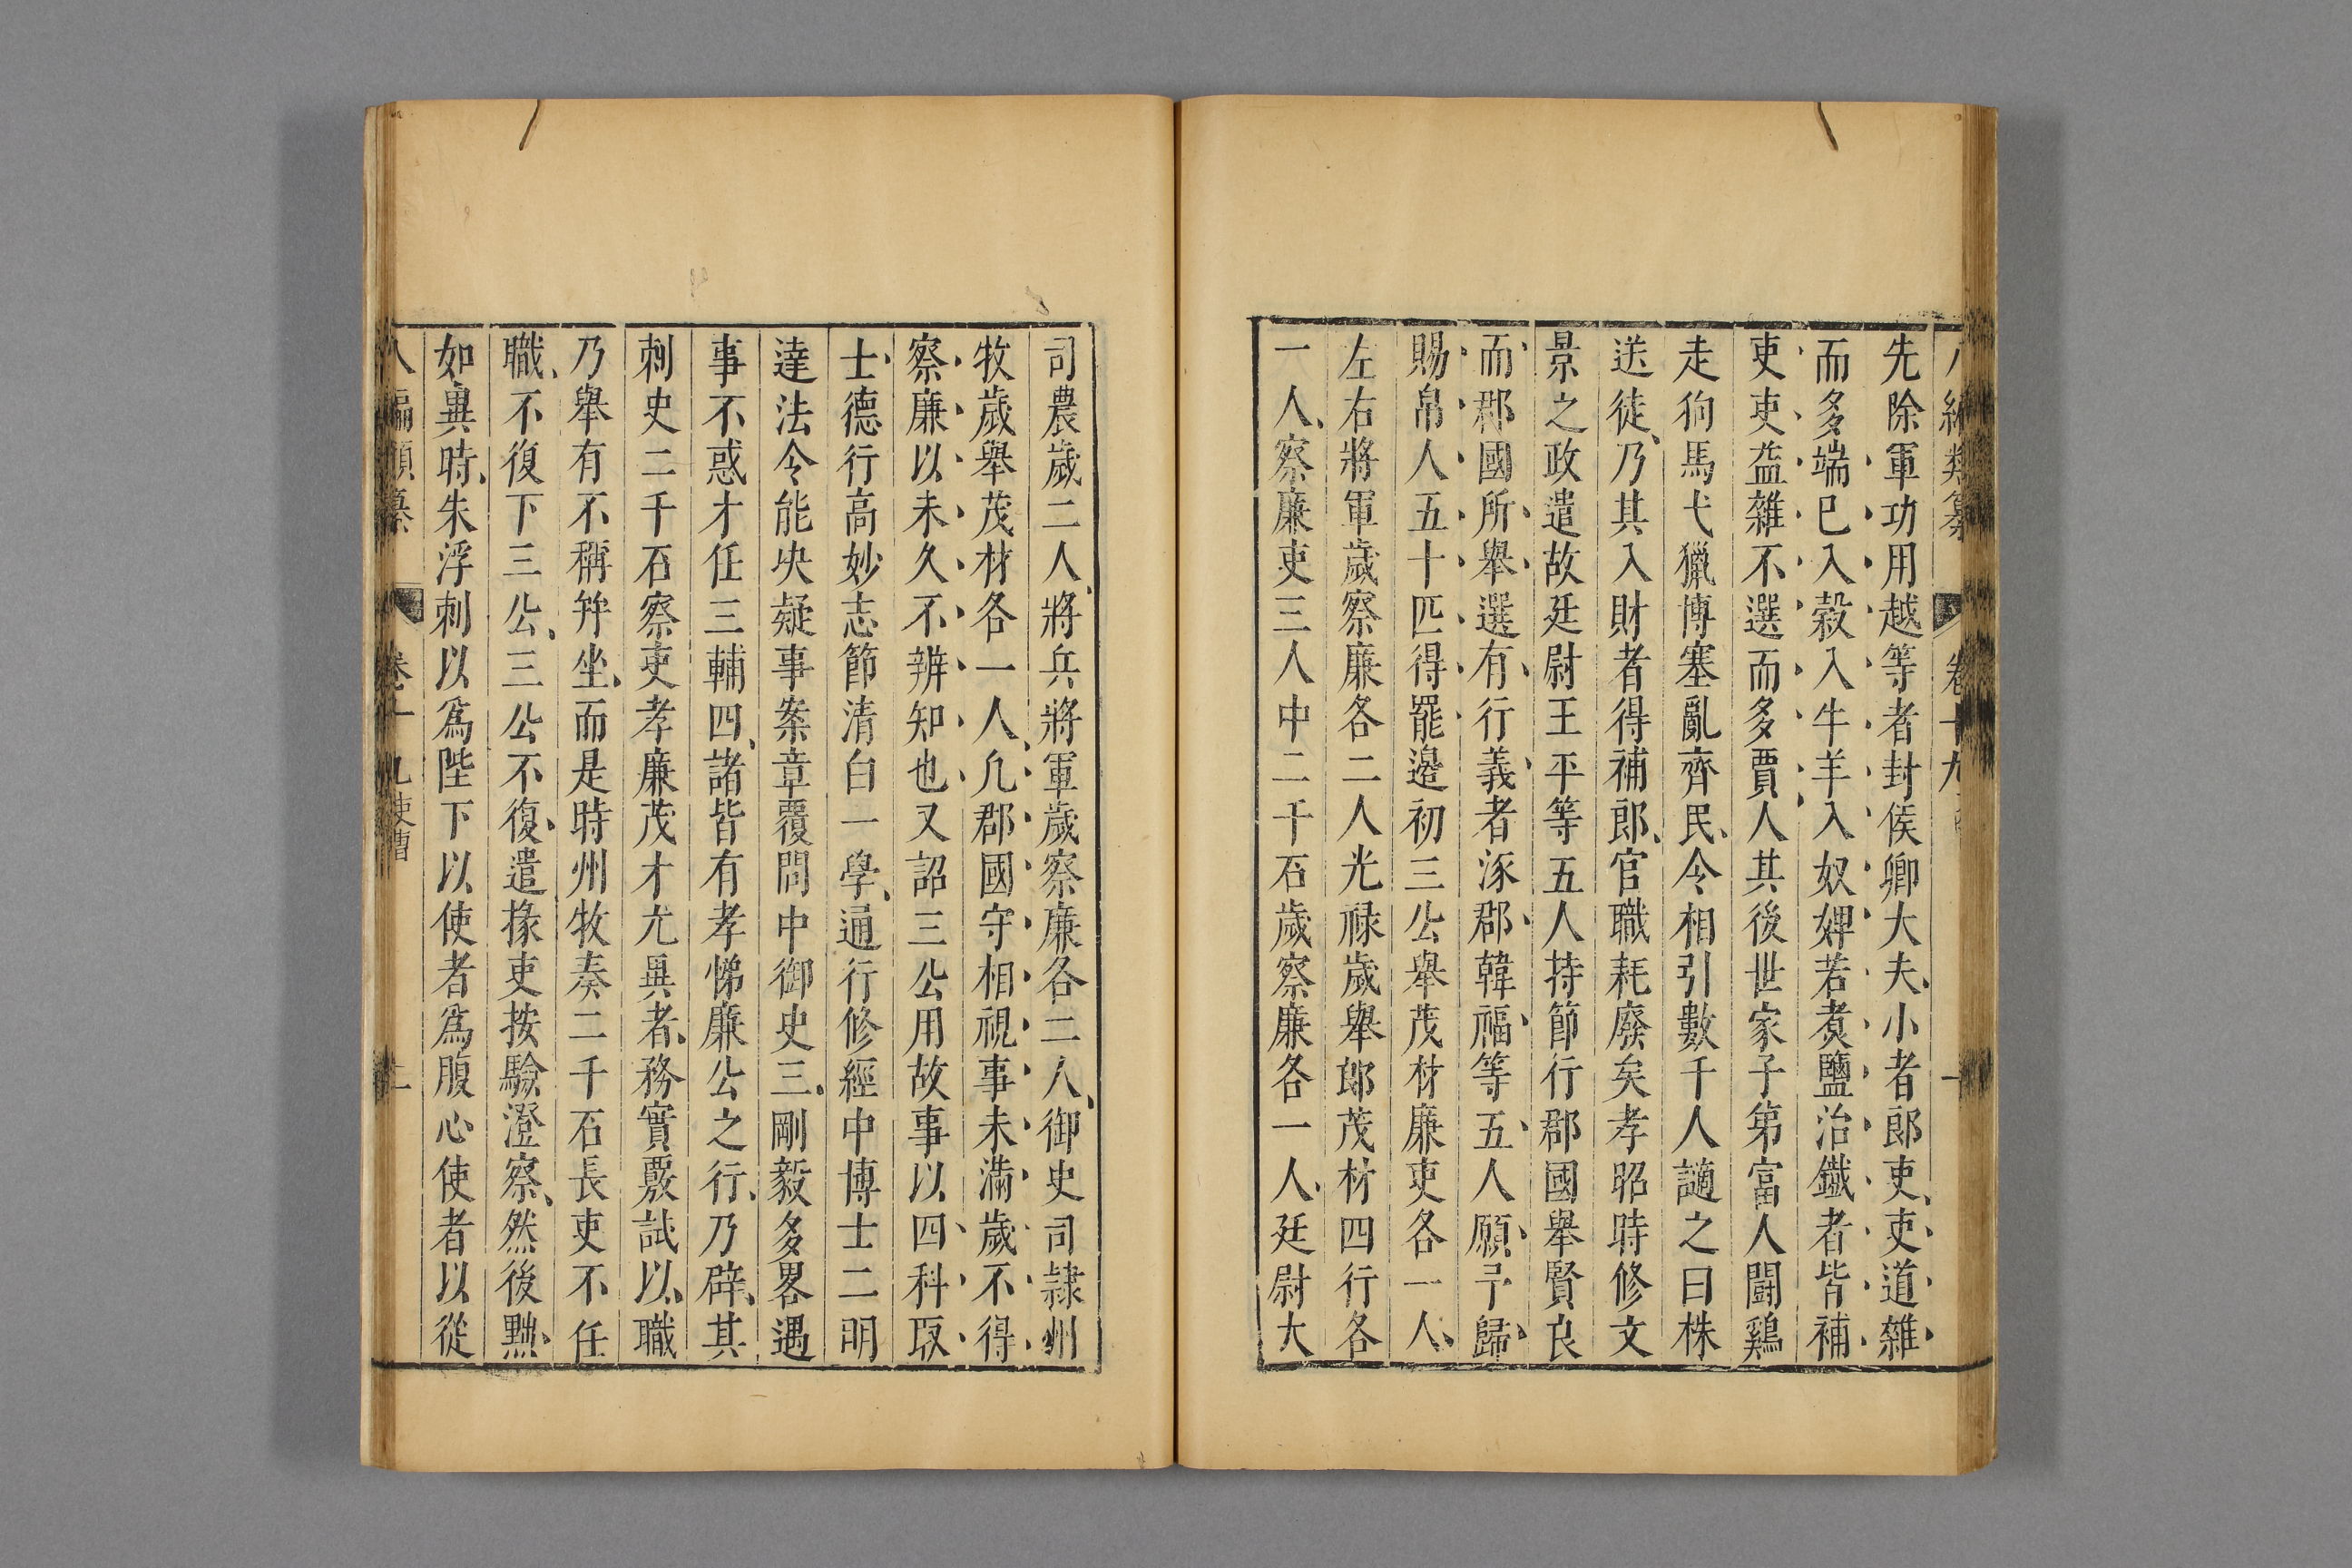 先除軍功用越等者封侯卿大夫小者郎吏吏道雜
而多端巳入穀入牛羊入奴婢若煮鹽治鐵者皆補
吏吏益雜不選而多賈人其後世家子第富人鬪鷄
走狗馬弋獵博塞亂齊民令相引數千人謫之曰株
送徒乃其入財者得補郎官職耗廢矣孝昭時修文
景之政遣故廷尉王平等五人持節行郡國舉賢良
而郡國所舉選有行義者涿郡韓福等五人願乎歸
賜帛人五十匹得罷邊初三公舉茂材廉吏各一人
左右將軍歲察廉各二人光祿歲舉郎茂材四行各
一人察廉吏三人中二千石歲察廉各一人廷尉大
司農歲二人將兵將軍歲察廉各二人御史司隷州
牧歲舉茂材各一人凢郡國守相視事未滿歲不得
察廉以未久不辨知也又詔三公用故事以四科取
士德行高妙志節清白一學通行修經中博士二明
達法令能决疑事案章覆問中御史三剛毅多畧遇
事不惑才任三輔四諸皆有孝悌廉公之行乃辟其
刺史二千石察吏孝廉茂才尤異者務實覈試以職
乃舉有不稱并坐而是時州牧奏二千石長吏不任
職不復下三公三公不復遣掾吏按驗澄察然後黜
如異時朱浮刺以爲陛下以使者爲腹心使者以從